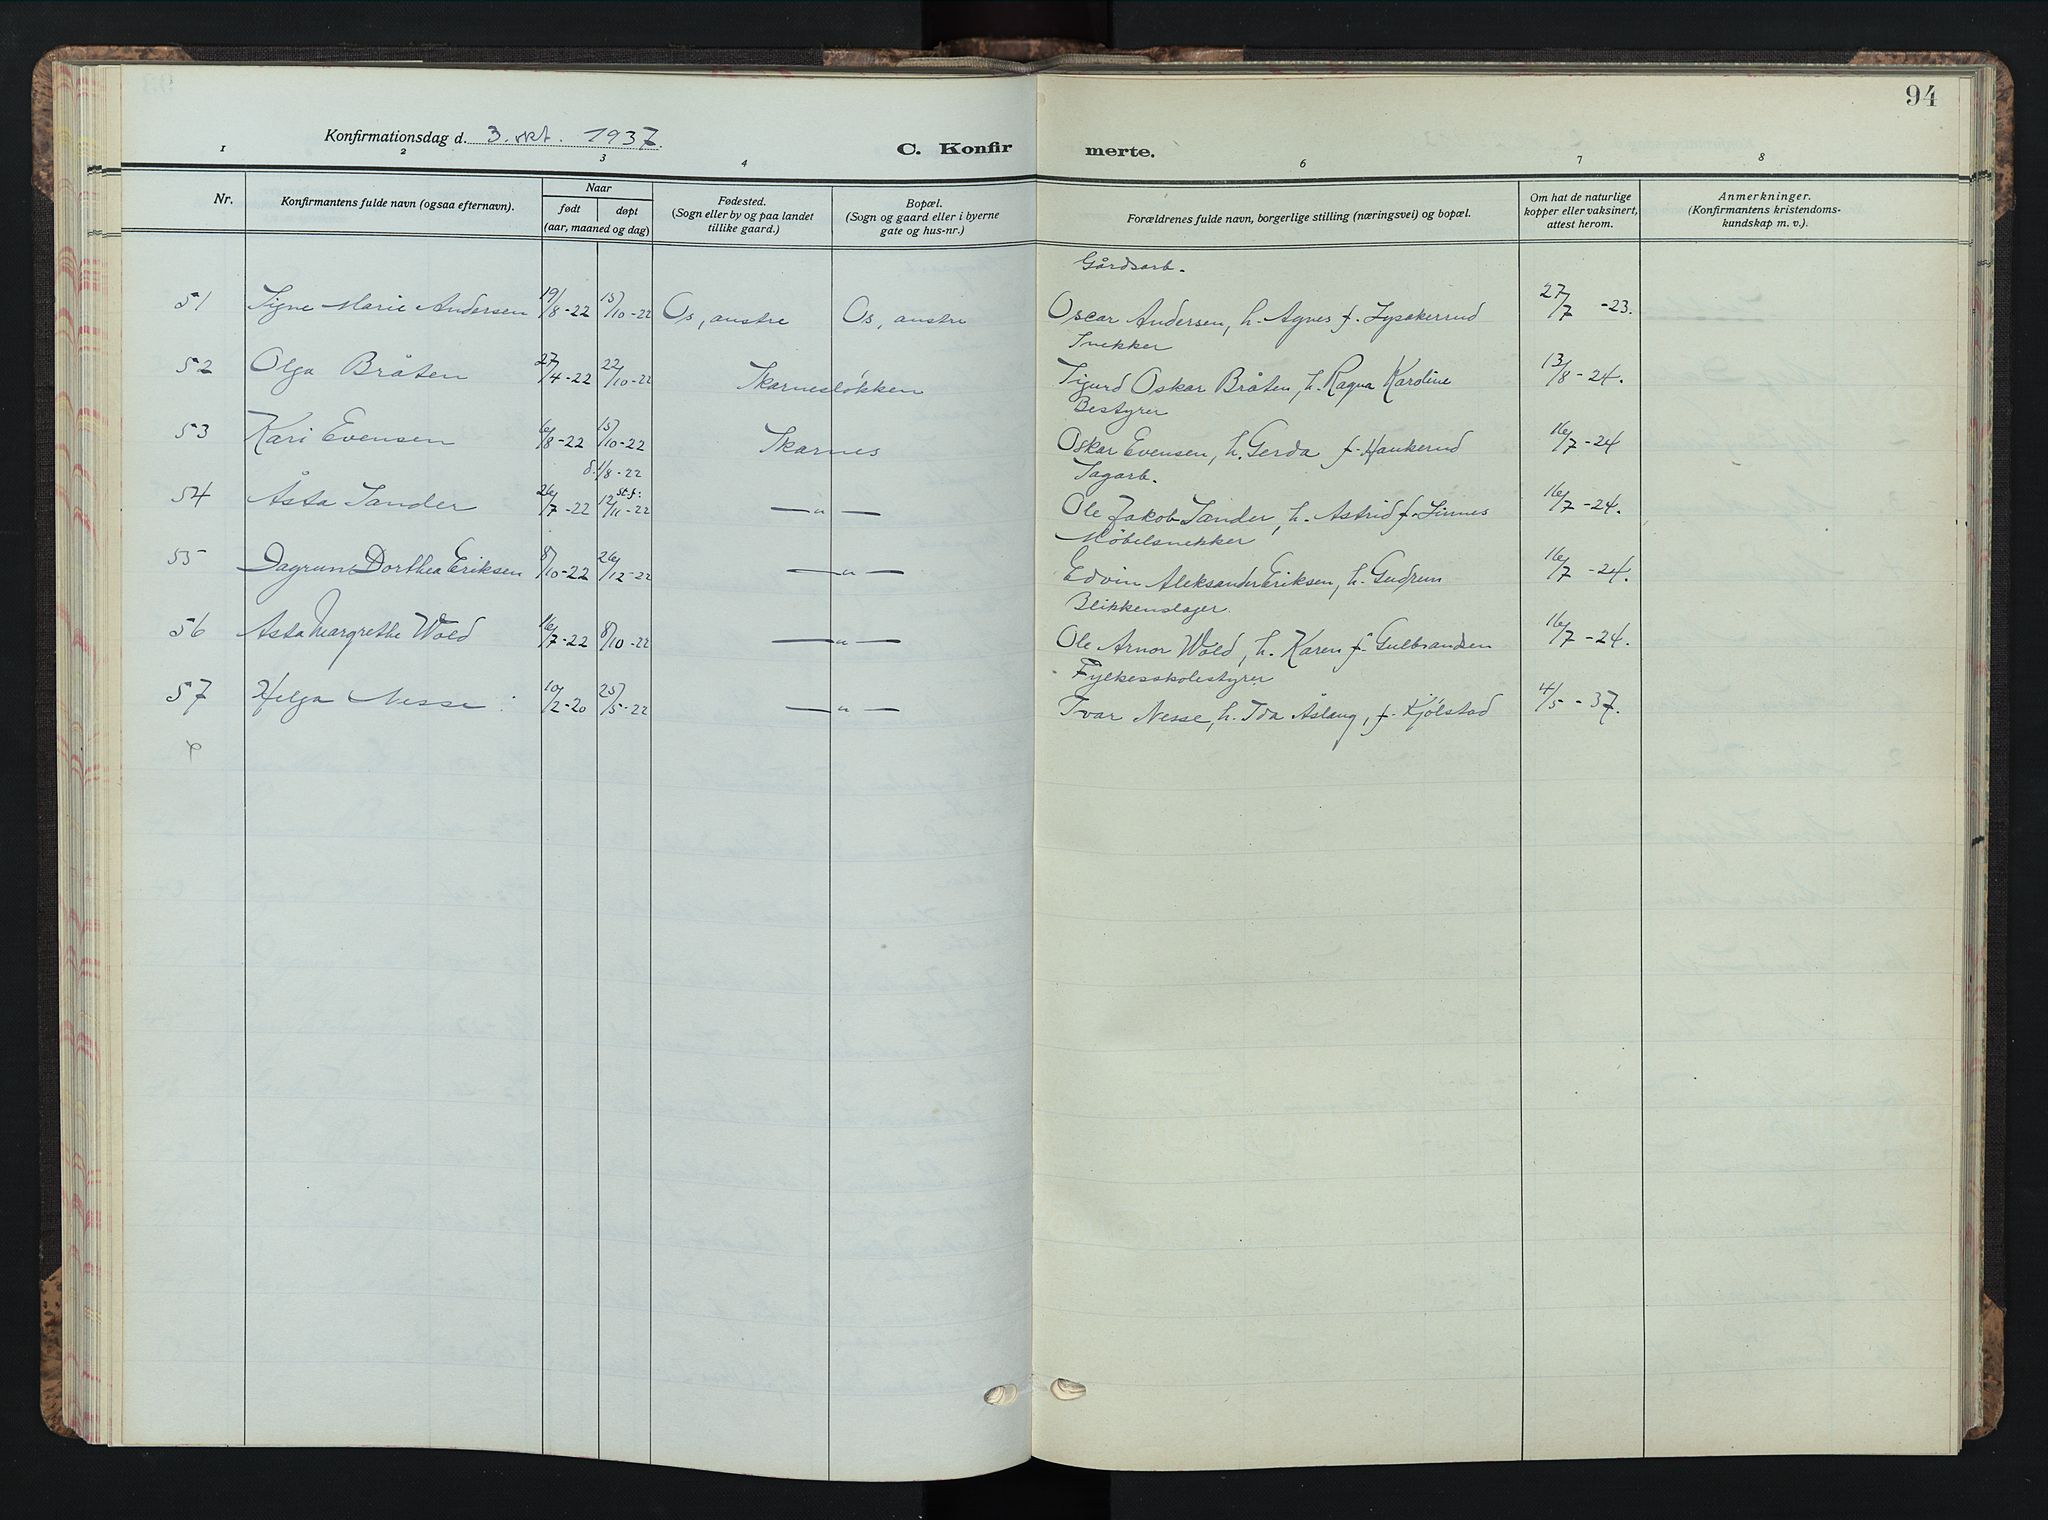 94
Konfirmationsdag d. 3. okt. 1937.
C. Konfir merte.
1 2 3 4 6 7 8
Nr. Konfirmantens fulde navn (ogsaa efternavn). Naar født døpt (aar, maaned og dag) Fødested. (Sogn eller by og paa landet tillike gaard.) Bopæl. (Sogn og gaard eller i byerne gate og hus-nr.) Forældrenes fulde navn, borgerlige stilling (næringsvei) og bopæl. Om hat de naturlige kopper eller vaksinert, attest herom. Anmerkninger. (Konfirmantens kristendoms- kundskap m. v.).
Gårdsarb.
51 Signe Marie Andersen 19/8-22 15/10-22 Os, austre Os, austre Oscar Andersen, h. Agnes f. Lysakerrud 27/7 -23.
Snekker
52 Olga Bråten 27/4-22 22/10-22 Skarnesløkken Sigurd Oskar Bråten, h. Ragna Karoline 13/8-24.
Bestyrer
53 Kari Evensen 6/8-22 15/10-22 Skarnes Oskar Evensen, h. Gerda f. Haukerud 16/7-24
d. 1/8-22 Sagarb.
54 Åsta Sander 26/7-22 st.f: 12/11-22 — " — Ole Jakob Sander, h. Astrid f. Linnes 16/7-24.
Møbelsnekker
55 Dagrun Dorthea Eriksen 8/10-22 26/12-22 — " — Edvin Aleksander Eriksen, h. Gudrun 16/7-24.
Blikkenslager.
56 Asta Margrethe Wold 16/7-22 8/10-22 — " — Ole Arnor Wold, h. Karen f. Gulbrandsen 16/7-24.
Fylkesskolestyrer
57 Helga Nesse 10/2-20 25/5-22 — " — Ivar Nesse, h. Ida Åslaug, f. Kjølstad 4/5-37.